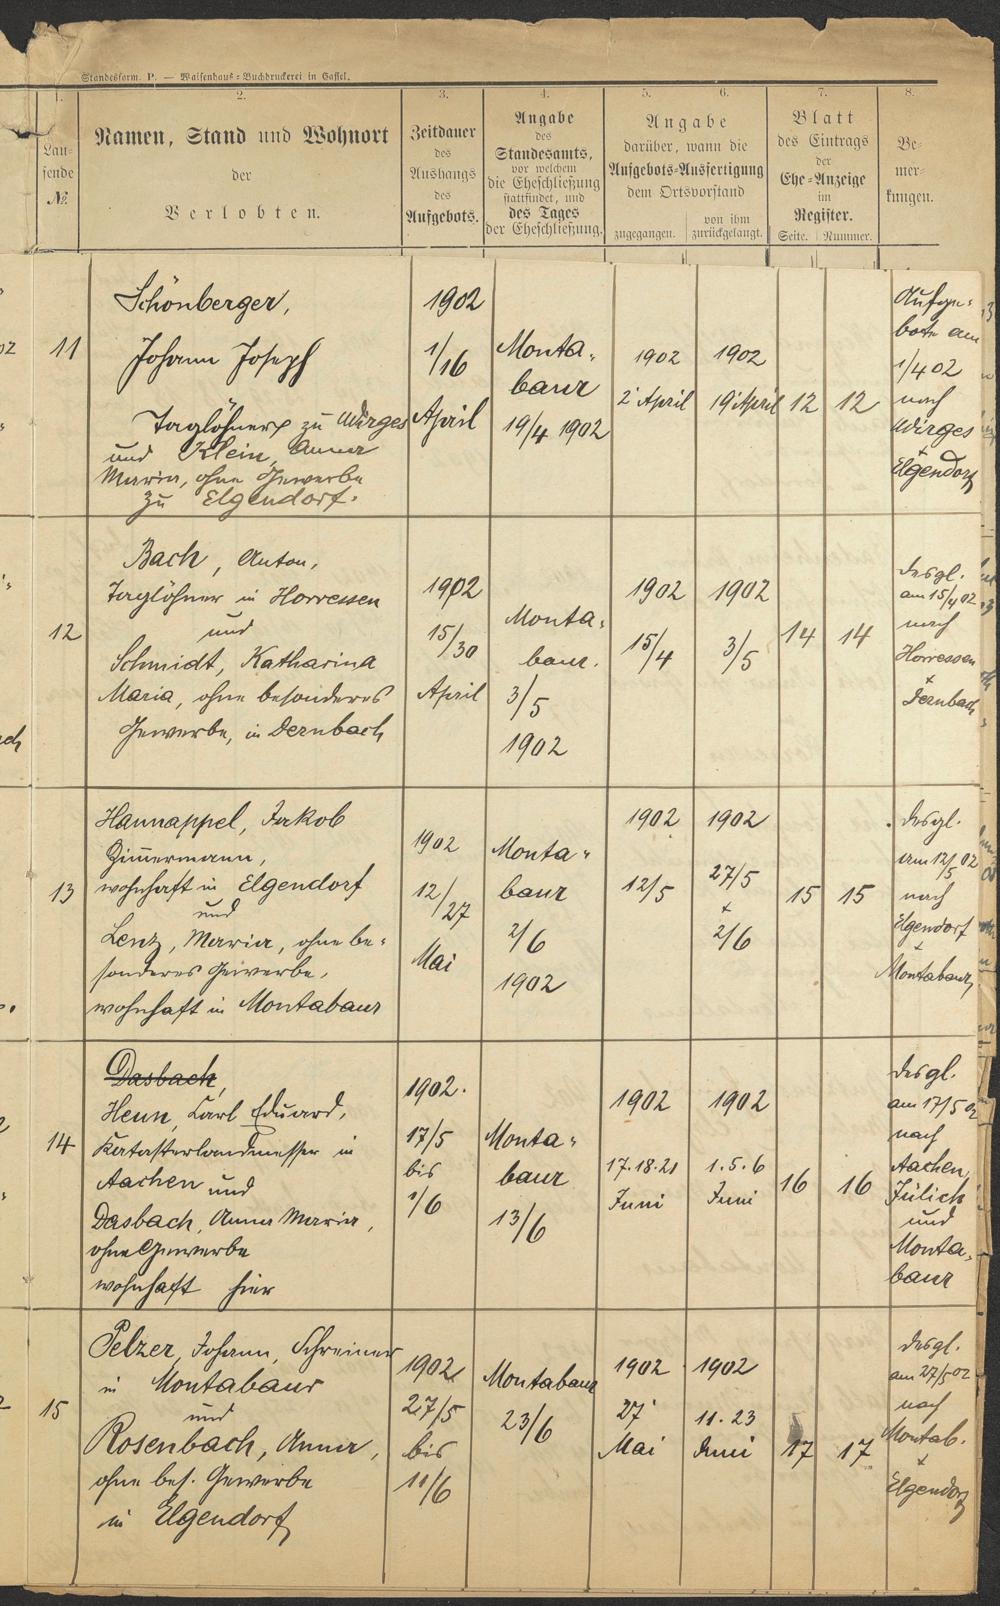 Standesform. P. — Waisenhaus-Buchdruckerei in Cassel.
1.
2.
3.
4.
5.
6.
7.
8.
Lau-
fende
№
Namen, Stand und Wohnort
der
Verlobten.
Zeitdauer
des
Aushangs
des
Aufgebots.
Angabe
des
Standesamts,
vor welchem
die Eheschließung
stattfindet, und
des Tages
der Eheschließung.
Angabe
darüber, wann die
Aufgebots-Ausfertigung
dem Ortsvorstand
zugegangen.
von ihm
zurückgelangt.
Blatt
des Eintrags
der
Ehe-Anzeige
im
Register.
Seite.
Nummer.
Be-
mer-
kungen.
11
Schönberger,
Johann Joseph
Taglöhner zu Wirges
und Klein, Anna
Maria, ohne Gewerbe
zu Elgendorf.
1902
1/16
April
Monta-
baur
19/4 1902
1902
2 April
1902
19 April
12
12
Aufge-
bote am
1/4 02
nach
Wirges
+
Elgendorf
12
Bach, Anton,
Taglöhner in Horressen
und
Schmidt, Katharina
Maria, ohne besonderes
Gewerbe, in Dernbach
1902
15/30
April
Monta-
baur.
3/5
1902
1902
15/4
1902
3/5
14
14
desgl.
am 15/4 02
nach
Horressen
+
Dernbach
13
Hannappel, Jakob
Zimmermann,
wohnhaft in Elgendorf
und
Lenz, Maria, ohne be-
sonderes Gewerbe,
wohnhaft in Montabaur
1902
12/27
Mai
Monta-
baur
2/6
1902
1902
12/5
1902
27/5
+
2/6
15
15
desgl.
am 12/5 02
nach
Elgendorf
+
Montabaur
14
Dasbach,
Henn, Carl Eduard,
Katasterlandmesser in
Aachen und
Dasbach, Anna Maria,
ohne Gewerbe
wohnhaft hier
1902.
17/5
bis
1/6
Monta-
baur
13/6
1902
17.18.21
Juni
1902
1.5.6
Juni
16
16
desgl.
am 17/5 02
nach
Aachen,
Jülich
und
Monta-
baur
15
Pelzer, Johann, Schreiner
in Montabaur
und
Rosenbach, Anna,
ohne bes. Gewerbe
in Elgendorf
1902
27/5
bis
11/6
Montabaur
23/6
1902
27
Mai
1902
11. 23
Juni
17
17
desgl.
am 27/5 02
nach
Montab.
+
Elgendorf